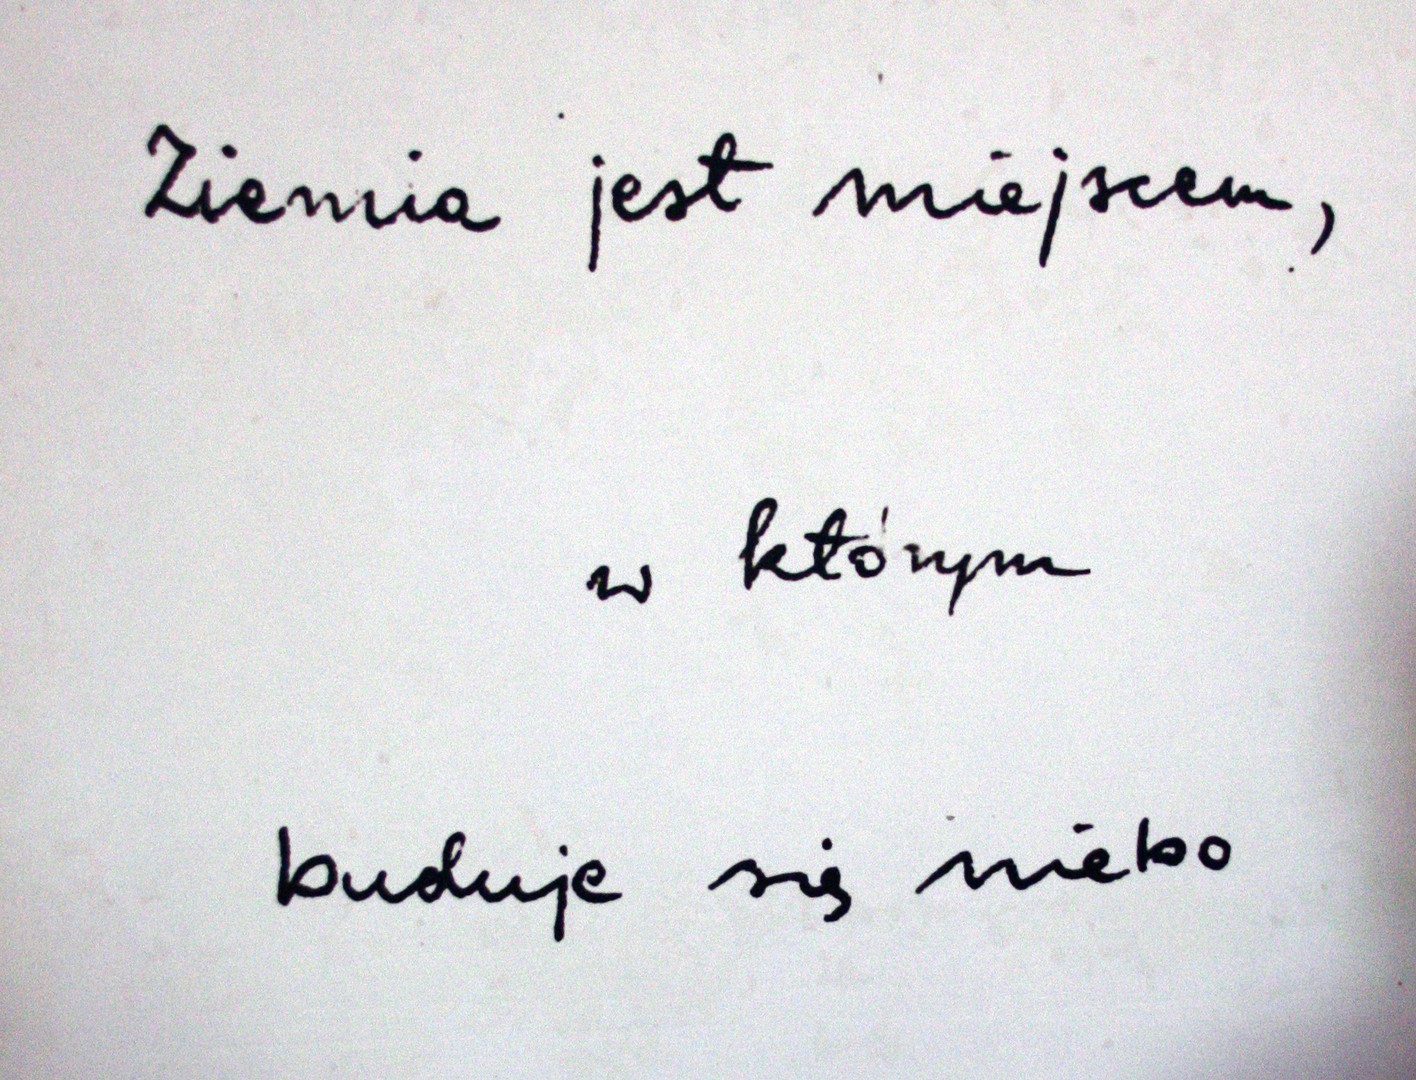 Ziemia jest miejscem,
w którym
buduje się niebo